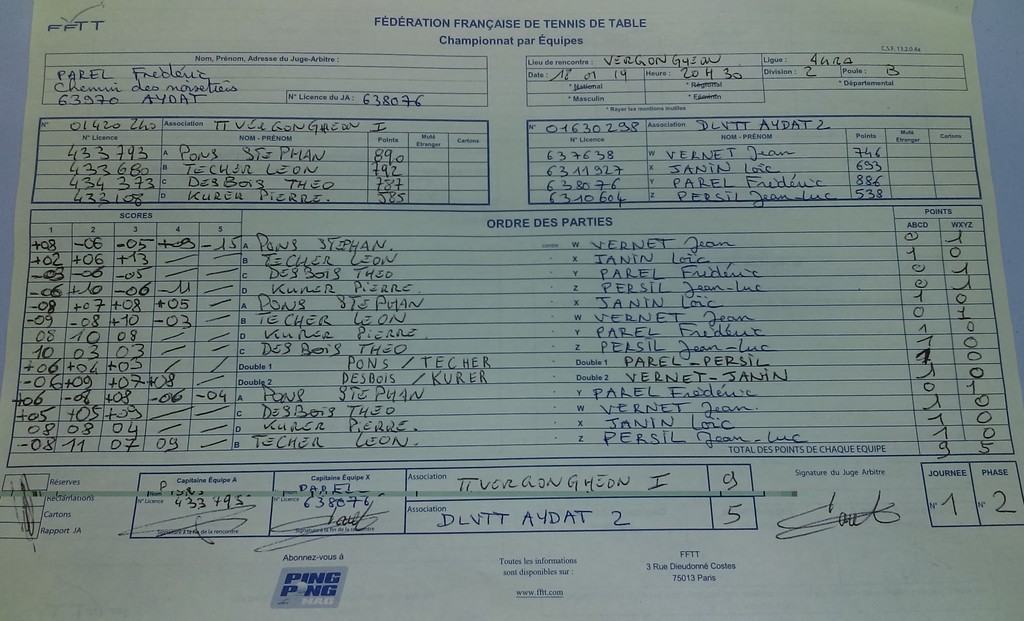 FFTT
FÉDÉRATION FRANÇAISE DE TENNIS DE TABLE
Championnat par Équipes
C.S.F. 13.2.0.4a
Nom, Prénom, Adresse du Juge-Arbitre :
PAREL Frédéric
Chemin des noisetiers
63970 AYDAT
N° Licence du JA : 638076
Lieu de rencontre : VERGONGHEON Ligue : AURA
Date : 18 01 19 Heure : 20 H 30 Division : 2 Poule : B
* National * Régional * Départemental
* Masculin * Féminin
* Rayer les mentions inutiles
N° 01420240 Association TT VERGONGHEON I
N° Licence NOM - PRÉNOM Points Muté Etranger Cartons
433793 A PONS STEPHAN 890
433680 B TECHER LEON 792
434373 C DESBOIS THEO 787
433108 D KURER PIERRE. 585
N° 01630298 Association DLVTT AYDAT 2
N° Licence NOM - PRÉNOM Points Muté Etranger Cartons
637638 W VERNET Jean 746
6311927 X JANIN Loïc 693
638076 Y PAREL Frédéric 886
6310604 Z PERSIL Jean-Luc 538
SCORES ORDRE DES PARTIES POINTS
1 2 3 4 5 ABCD WXYZ
+08 -06 -05 +09 -15 A PONS STEPHAN. contre W VERNET Jean 0 1
+02 +06 +13 / / B TECHER LEON X JANIN Loïc 1 0
-03 -06 -05 / / C DESBOIS THEO Y PAREL Frédéric 0 1
-06 +10 -06 -11 / D KURER PIERRE. Z PERSIL Jean-Luc 0 1
-08 +07 +08 +05 / A PONS STEPHAN X JANIN Loïc 1 0
-09 -08 +10 -03 / B TECHER LEON W VERNET Jean 0 1
08 10 08 / / D KURER PIERRE Y PAREL Frédéric 1 0
10 03 03 / / C DESBOIS THEO Z PERSIL Jean-Luc 1 0
+06 +04 +03 / / Double 1 PONS / TECHER Double 1 PAREL-PERSIL 1 0
-06 +09 +07 +08 / Double 2 DESBOIS / KURER Double 2 VERNET-JANIN 1 0
+06 -08 +08 -06 -04 A PONS STEPHAN Y PAREL Frédéric 0 1
+05 +05 +09 / / C DESBOIS THEO W VERNET Jean. 1 0
08 08 04 / / D KURER PIERRE. X JANIN Loïc 1 0
-08 11 07 09 / B TECHER LEON. Z PERSIL Jean-Luc 1 0
TOTAL DES POINTS DE CHAQUE EQUIPE 9 5
Réserves
Réclamations
Cartons
Rapport JA
Capitaine Équipe A
N° Licence 433793
Signature à la fin de la rencontre
Capitaine Équipe X
PAREL
N° Licence 638076
Signature à la fin de la rencontre
Association TTVERGONGHEON I 9
Association DLVTT AYDAT 2 5
Signature du Juge Arbitre
JOURNEE PHASE
N° 1 N° 2
Abonnez-vous à
PING PONG MAG
Toutes les informations
sont disponibles sur :
www.fftt.com
FFTT
3 Rue Dieudonné Costes
75013 Paris